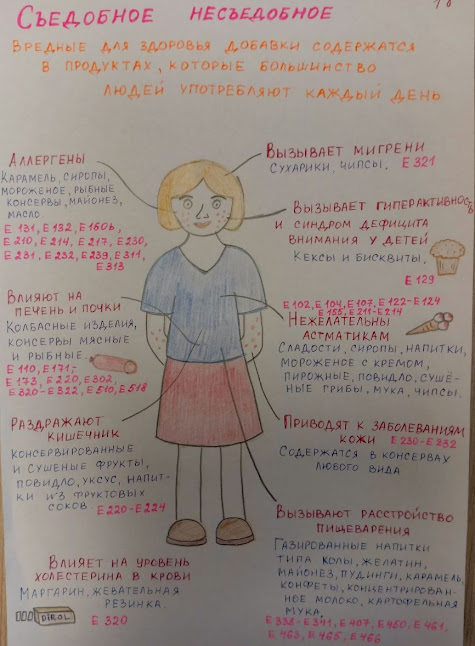 СЪЕДОБНОЕ НЕСЪЕДОБНОЕ
ВРЕДНЫЕ ДЛЯ ЗДОРОВЬЯ ДОБАВКИ СОДЕРЖАТСЯ
В ПРОДУКТАХ, КОТОРЫЕ БОЛЬШИНСТВО
ЛЮДЕЙ УПОТРЕБЛЯЮТ КАЖДЫЙ ДЕНЬ
АЛЛЕРГЕНЫ
КАРАМЕЛЬ, СИРОПЫ,
МОРОЖЕНОЕ, РЫБНЫЕ
КОНСЕРВЫ, МАЙОНЕЗ,
МАСЛО.
Е 131, Е 132, Е 160b,
Е 210, Е 214, Е 217, Е 230,
Е 231, Е 232, Е 239, Е 311,
Е 313
ВЛИЯЮТ НА
ПЕЧЕНЬ И ПОЧКИ
КОЛБАСНЫЕ ИЗДЕЛИЯ,
КОНСЕРВЫ МЯСНЫЕ
И РЫБНЫЕ.
Е 110, Е 171-
Е 173, Е 220, Е 302,
Е 320-Е 322, Е 510, Е 518
РАЗДРАЖАЮТ
КИШЕЧНИК
КОНСЕРВИРОВАННЫЕ
И СУШЕНЫЕ ФРУКТЫ,
ПОВИДЛО, УКСУС, НАПИТ-
КИ ИЗ ФРУКТОВЫХ
СОКОВ Е 220-Е 224
ВЛИЯЕТ НА УРОВЕНЬ
ХОЛЕСТЕРИНА В КРОВИ
МАРГАРИН, ЖЕВАТЕЛЬНАЯ
РЕЗИНКА.
DIROL
Е 320
ВЫЗЫВАЕТ МИГРЕНИ
СУХАРИКИ, ЧИПСЫ. Е 321
ВЫЗЫВАЕТ ГИПЕРАКТИВНОСТЬ
И СИНДРОМ ДЕФИЦИТА
ВНИМАНИЯ У ДЕТЕЙ
КЕКСЫ И БИСКВИТЫ.
Е 129
Е 102, Е 104, Е 107, Е 122-Е 124
Е 155, Е 211-Е 214
НЕЖЕЛАТЕЛЬНЫ
АСТМАТИКАМ
СЛАДОСТИ, СИРОПЫ, НАПИТКИ,
МОРОЖЕНОЕ С КРЕМОМ,
ПИРОЖНЫЕ, ПОВИДЛО, СУШЁ-
НЫЕ ГРИБЫ, МУКА, ЧИПСЫ.
ПРИВОДЯТ К ЗАБОЛЕВАНИЯМ
КОЖИ Е 230-Е 232
СОДЕРЖАТСЯ В КОНСЕРВАХ
ЛЮБОГО ВИДА
ВЫЗЫВАЮТ РАССТРОЙСТВО
ПИЩЕВАРЕНИЯ
ГАЗИРОВАННЫЕ НАПИТКИ
ТИПА КОЛЫ, ЖЕЛАТИН,
МАЙОНЕЗ, ПУДИНГИ, КАРАМЕЛЬ,
КОНФЕТЫ, КОНЦЕНТРИРОВАН-
НОЕ МОЛОКО, КАРТОФЕЛЬНАЯ
МУКА.
Е 338-Е 341, Е 407, Е 450, Е 461,
Е 463, Е 465, Е 466